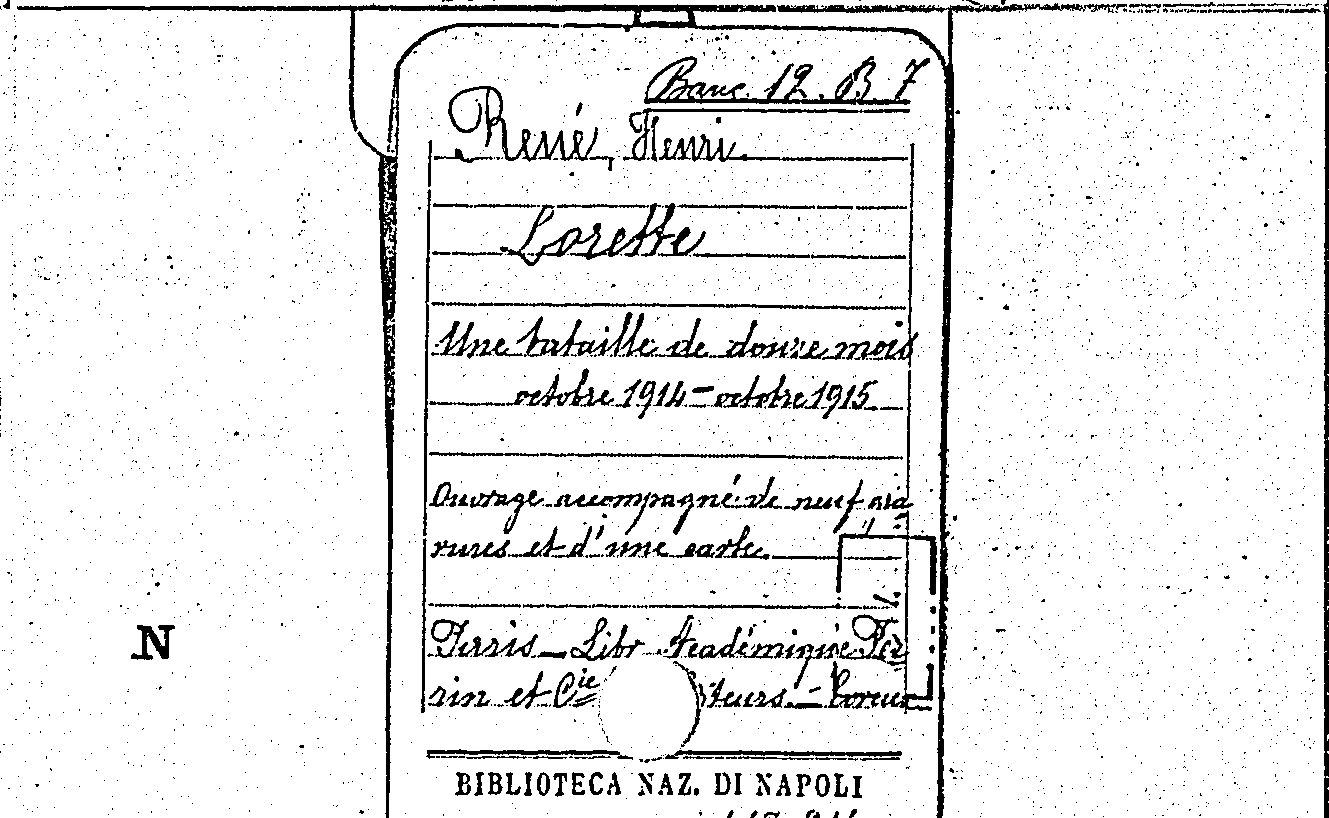 Banc. 12. B 7
René, Henri.
Lorette
Une bataille de douze mois
octobre 1914 - octobre 1915
Ouvrage accompagné de neuf gra
vures et d'une carte.
Libr Académique Per
rin et Cie teurs. -
N
BIBLIOTECA NAZ. DI NAPOLI